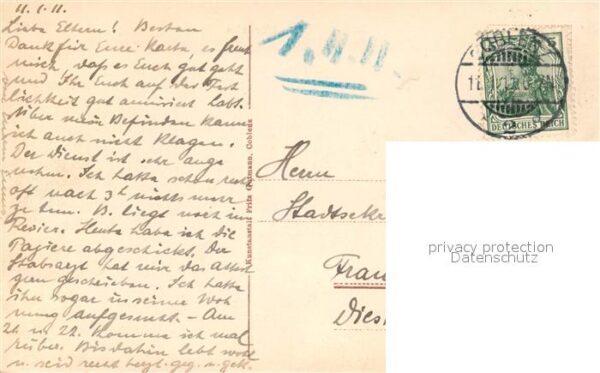 11.1.11.
Liebe Eltern! Besten
Dank für Eure Karte, es freut
mich, daß es Euch gut geht
und Ihr Euch auf der Fest
lichkeit gut amüsiert habt.
Über mein Befinden kann
ich auch nicht klagen.
Der Dienst ist sehr ange
nehm. Ich hatte schon recht
oft nach 3h nichts mehr
zu tun. B. liegt noch im
Revier. Heute habe ich die
Papiere abgeschickt. Der
Stabsarzt hat mir das Attest
gern geschrieben. Ich hatte
ihn sogar in seiner Woh
nung aufgesucht – Am
21 u. 22. komme ich mal
rüber. Bis dahin lebt wohl
u. seid recht herzl. geg. u. gek.
Kunstanstalt Fritz Gutmann, Coblenz
1.11.11.
COBLENZ
DEUTSCHES REICH
Herrn
Stadtsekre
Fran
Diest
privacy protection
Datenschutz